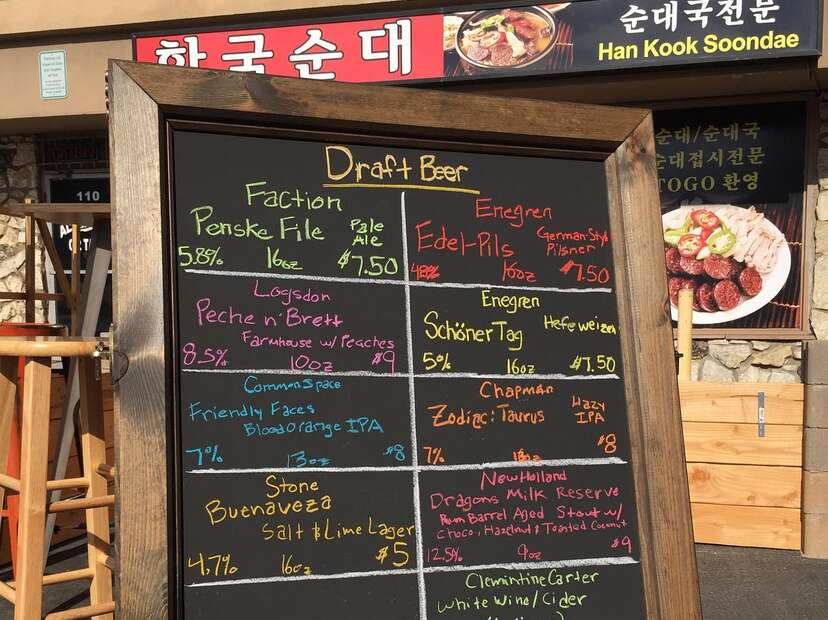 한국순대
순대국전문
Han Kook Soondae
110
순대/순대국
순대접시전문
TOGO 환영
Draft Beer
Faction
Penske File Pale Ale
5.8% 16oz $7.50
Enegren
Edel-Pils German-Style Pilsner
16oz $7.50
Logsdon
Peche n' Brett
Farmhouse w/ Peaches
8.5% 10oz $9
Enegren
Schöner Tag Hefeweizen
5% 16oz $7.50
Common Space
Friendly Faces
Blood Orange IPA
7% 13oz $8
Chapman
Zodiac: Taurus Hazy IPA
7% 13oz $8
Stone
Buenaveza
Salt & Lime Lager
4.7% 16oz $5
New Holland
Dragons Milk Reserve
Rum Barrel Aged Stout w/
Choco, Hazelnut & Toasted Coconut
12.5% 9oz $9
Clemintine Carter
White Wine / Cider